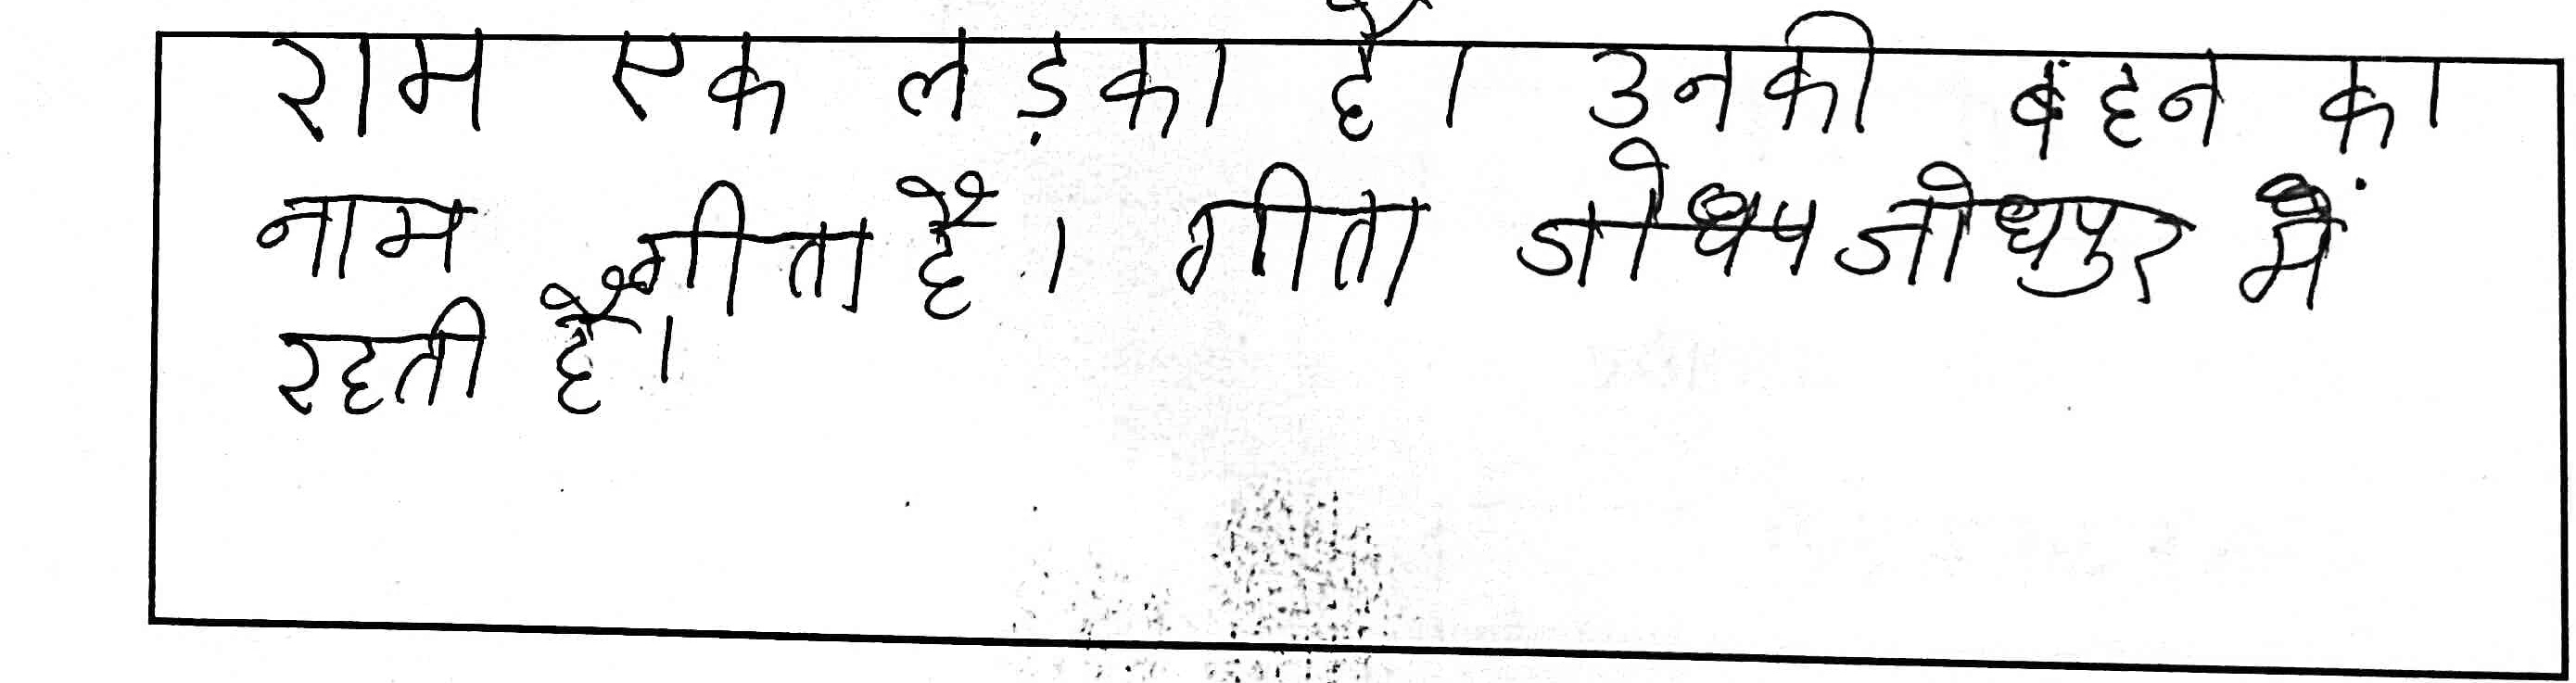 राम एक लड़का है। उनकी बहन का
नाम गीता है। गीता जोधप जोधपुर में
रहती है।